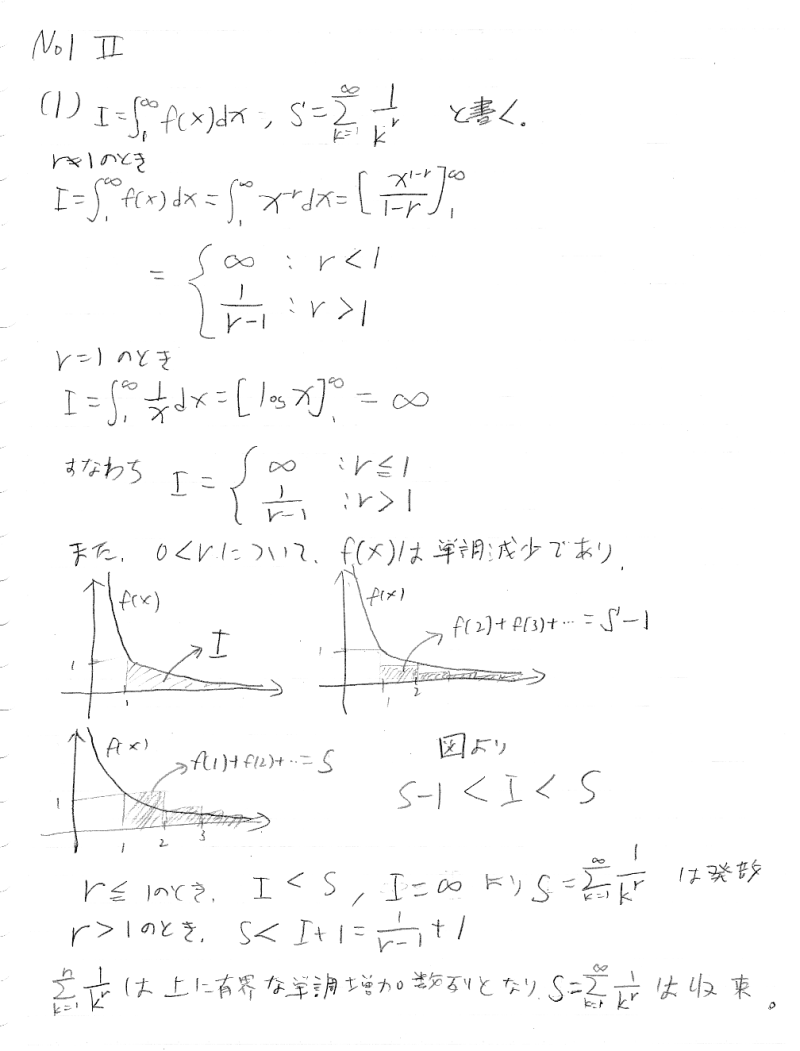 No1 II
(1) I=∫₁^∞ f(x)dx, S=∑_{k=1}^∞ 1/k^r と書く.
r≠1のとき
I=∫₁^∞ f(x)dx=∫₁^∞ x^{-r}dx=[x^{1-r}/(1-r)]₁^∞
= { ∞ : r<1
1/(r-1) : r>1
r=1のとき
I=∫₁^∞ 1/x dx=[log x]₁^∞ = ∞
すなわち I = { ∞ : r≦1
1/(r-1) : r>1
また、0<rについて、f(x)は単調減少であり、
f(x) 1 I 1
f(x) 1 f(2)+f(3)+…=S-1 1 2
f(x) 1 f(1)+f(2)+…=S 1 2 3
図より
S-1 < I < S
r≦1のとき、I<S, I=∞ より S=∑_{k=1}^∞ 1/k^r は発散
r>1のとき、S< I+1= 1/(r-1) +1
∑_{k=1}^n 1/k^r は上に有界な単調増加数列となり S=∑_{k=1}^∞ 1/k^r は収束。